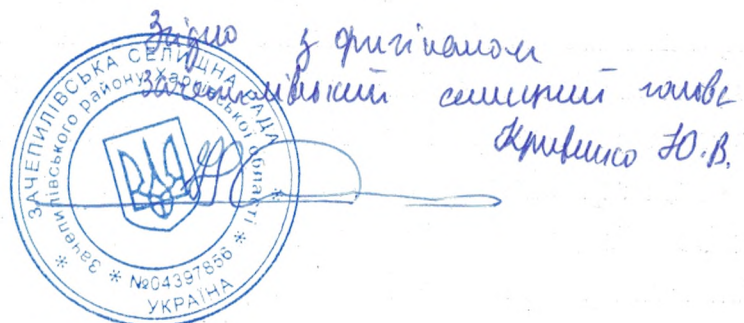 Згідно з оригіналом
Зачепилівський селищний голова
Кривенко Ю.В.
ЗАЧЕПИЛІВСЬКА СЕЛИЩНА РАДА
Зачепилівського району Харківської області
№04397856
УКРАЇНА